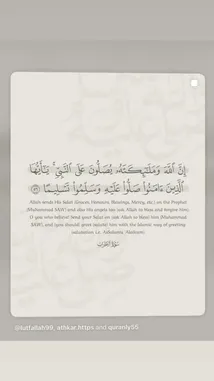 إِنَّ ٱللَّهَ وَمَلَٰٓئِكَتَهُۥ يُصَلُّونَ عَلَى ٱلنَّبِىِّ ۚ يَٰٓأَيُّهَا
ٱلَّذِينَ ءَامَنُوا۟ صَلُّوا۟ عَلَيْهِ وَسَلِّمُوا۟ تَسْلِيمًا ﴿٥٦﴾
Allah sends His Salat (Graces, Honours, Blessings, Mercy, etc.) on the Prophet
(Muhammad SAW) and also His angels too (ask Allah to bless and forgive him).
O you who believe! Send your Salat on (ask Allah to bless) him (Muhammad
SAW), and (you should) greet (salute) him with the Islamic way of greeting
(salutation i.e. AsSalamu 'Alaikum).
سُورَةُ الأَحْزَاب
@lutfallah99, athkar.https and quranly56